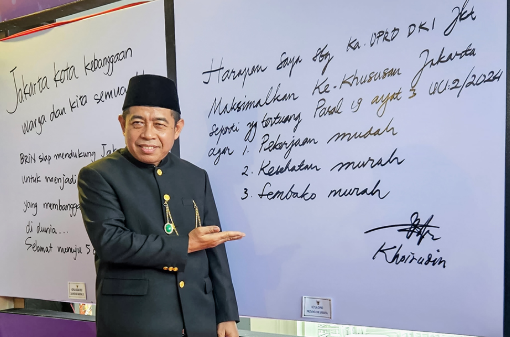 Jakarta kota kebanggaan
warga dan kita semua
BRIN siap mendukung
untuk menjadi
yang membangga
di dunia...
Selamat menuju 5
Harapan Saya sbg Ka. DPRD DKI Jkt
Maksimalkan Ke-Khususan Jakarta
Seperti yg tertuang Pasal 19 ayat 3 UU.2/2024
agar 1. Pekerjaan mudah
2. Kesehatan murah
3. Sembako murah
Khoirudin